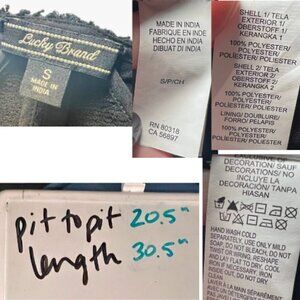 Lucky Brand
S
MADE IN
INDIA
MADE IN INDIA
FABRIQUE EN INDE
HECHO EN INDIA
DIBUAT DI INDIA
S/P/CH
RN 80318
CA 56897
SHELL 1/ TELA
EXTERIOR 1/
OBERSTOFF 1/
KERANGKA 1
100% POLYESTER/
POLYESTER/ POLIÉSTER/
POLIESTER/ POLIESTER
SHELL 2/ TELA
EXTERIOR 2/
OBERSTOFF 2/
KERANGKA 2
100% POLYESTER/
POLYESTER/ POLIÉSTER/
POLIESTER/ POLIESTER
LINING/ DOUBLURE/
FORRO/ PELAPIS
100% POLYESTER/
POLYESTER/ POLIÉSTER/
POLIESTER/ POLIESTER
pit to pit 20.5"
length 30.5"
EXCLUSIVE OF
DECORATION/ SAUF
DÉCORATION/ NO
INCLUYE LA
DECORACIÓN/ TANPA
HIASAN
HAND WASH COLD
SEPARATELY, USE ONLY MILD
SOAP, DO NOT BLEACH, DO NOT
TWIST OR WRING, RESHAPE
AND LAY FLAT TO DRY, COOL
IRON IF NECESSARY, IRON
INSIDE OUT, DO NOT DRY
CLEAN
LAVER À LA MAIN SÉPARÉMENT